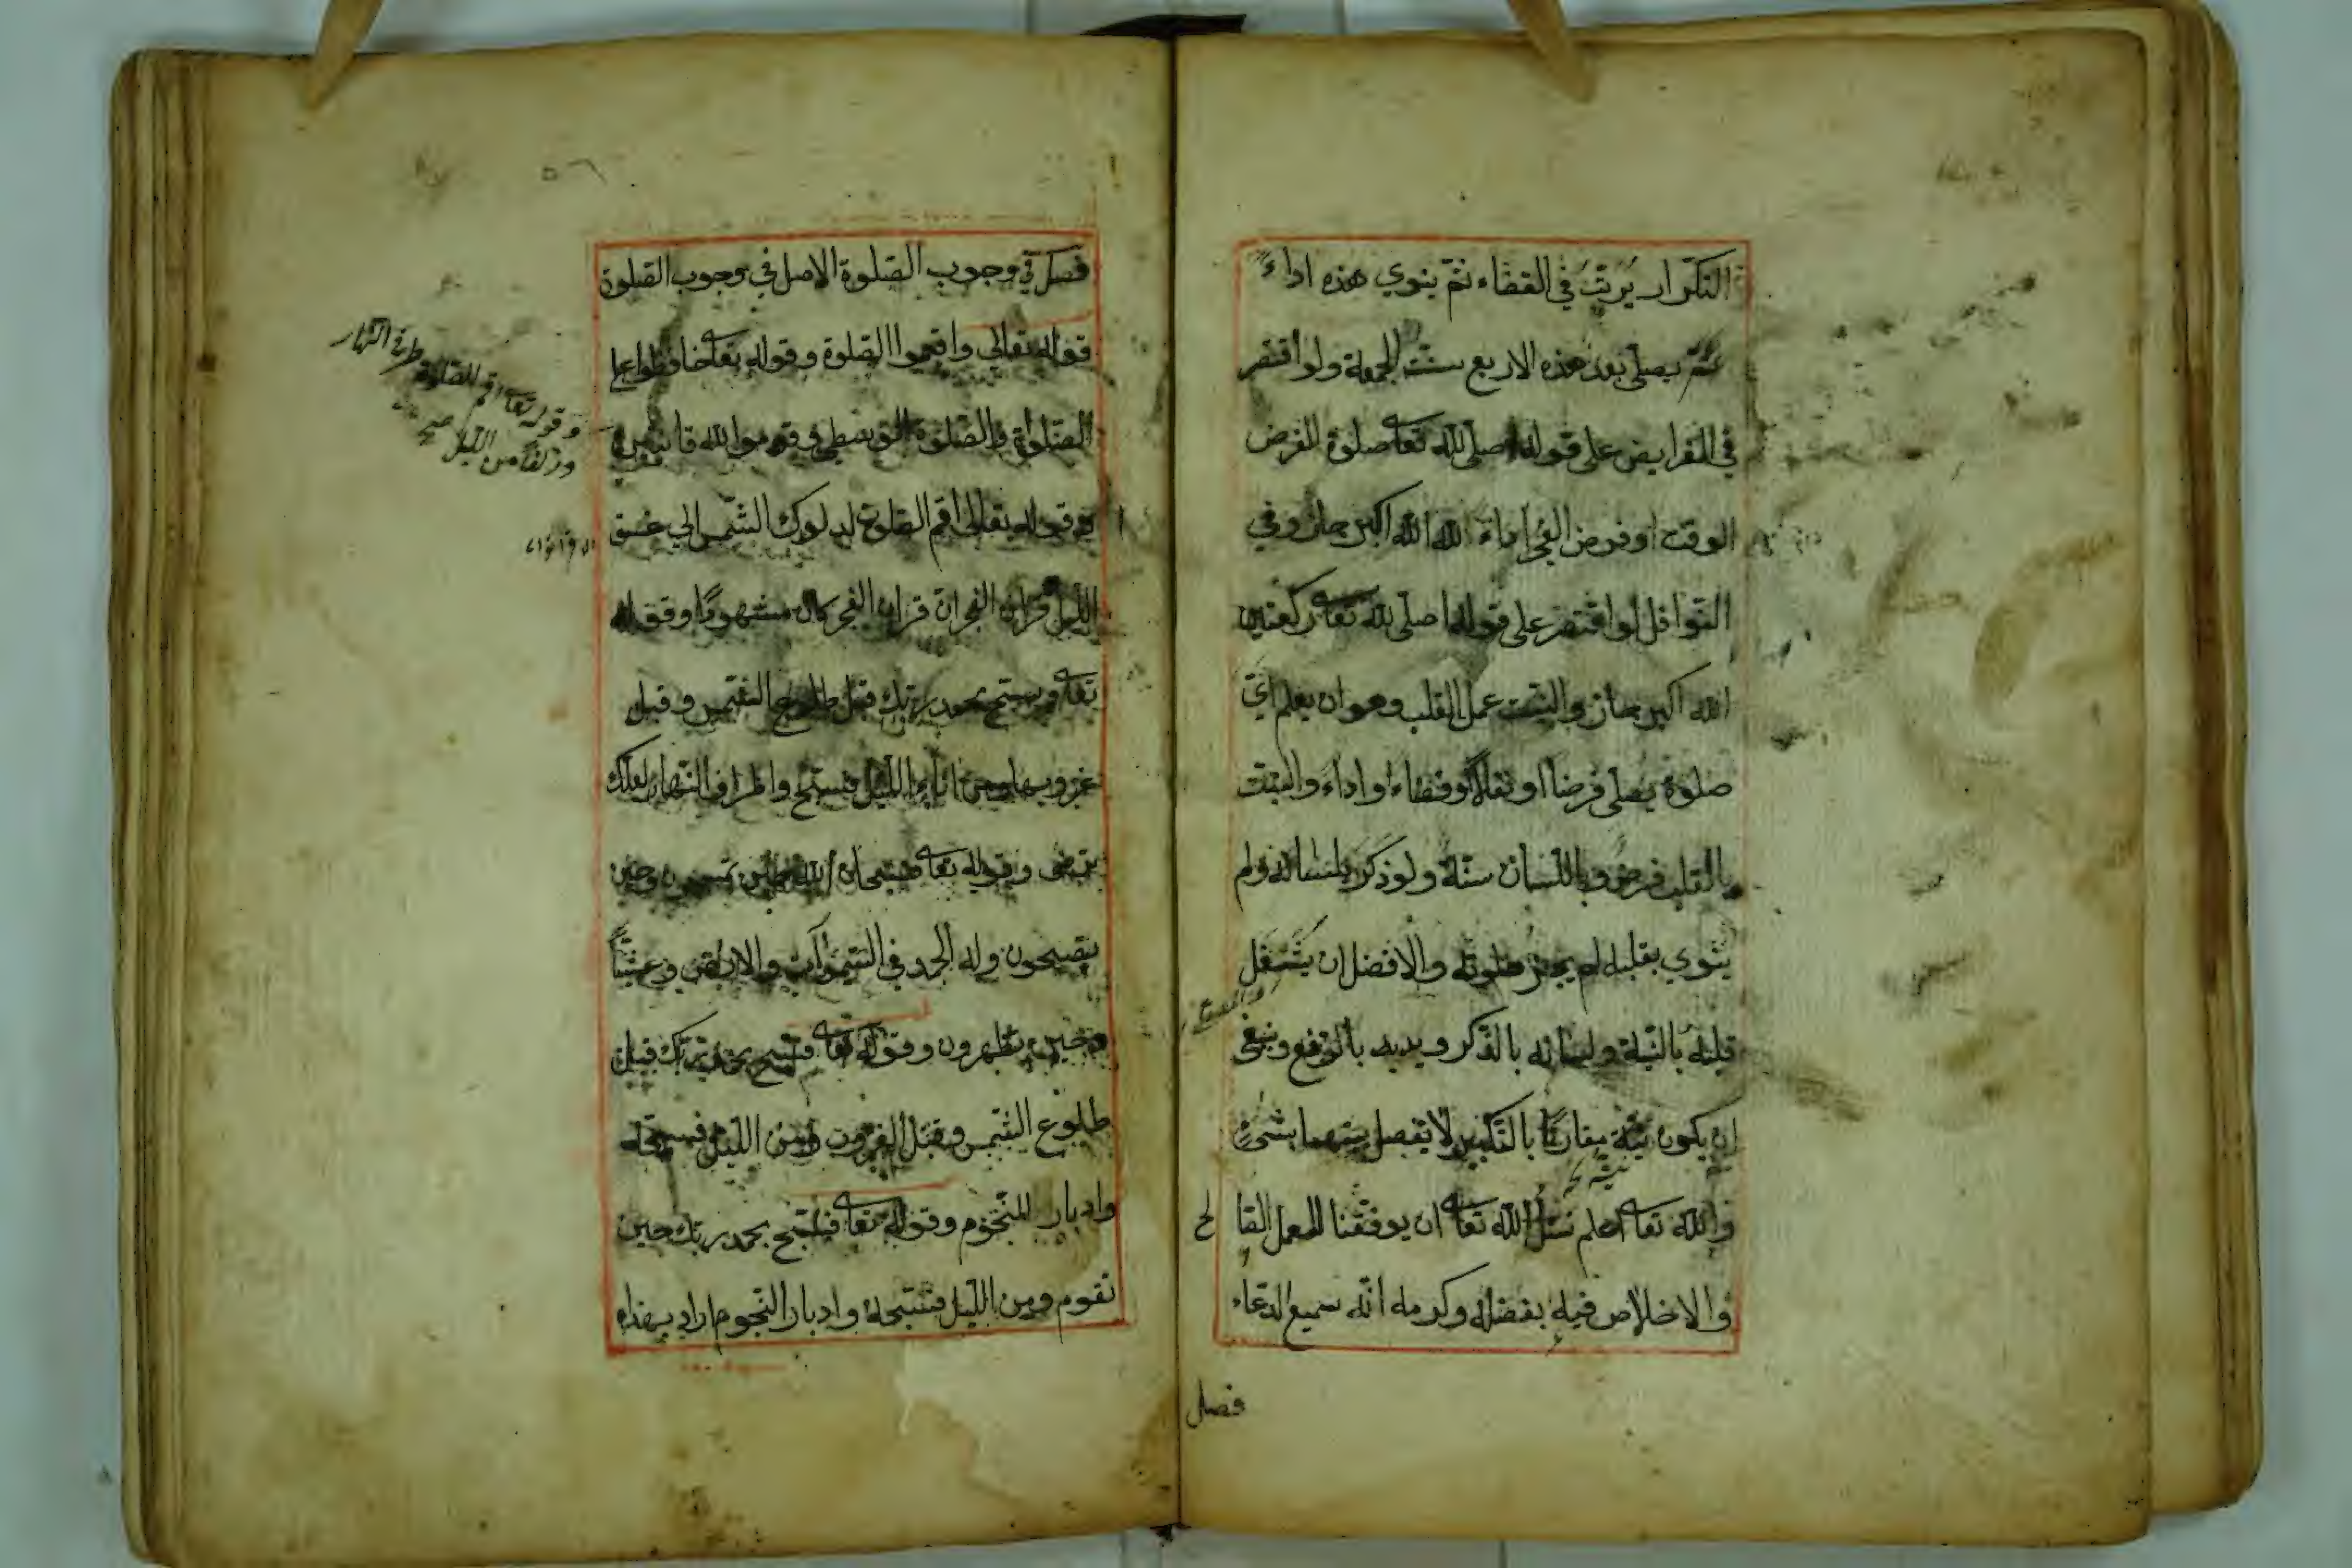 التكرار يرتب في القضاء ثم ينوي هذه اداء
ثم يصلي بعد هذه الاربع سنت الجمعة ولو اقتصر
في الفرايض على قوله اصلي لله تعا صلوة الفرض
الوقت او فرض الفجر اداء لله الله اكبر جاز وفي
النوافل لو اقتصر على قوله اصلي لله تعا ركعتين
الله اكبر جاز والنيت عمل القلب وهو ان يعلم اي
صلوة يصلي فرضا او نفلا او قضاء او اداء والنيت
بالقلب فرض وباللسان سنة ولو ذكر بلسانه ولم
ينوي بقلبه لم يجز صلوته والافضل ان يشتغل
قلبه بالنية ولسانه بالذكر ويديه بالرفع وينبغي
ان يكون نية مقارنا بالتكبير لا يفصل بينهما بشئ
والله تعا اعلم نسئل الله تعا ان يوفقنا للعمل الصا
لح
والاخلاص فيه بفضله وكرمه انه سميع الدعاء
فصل
٥٦
فصل في وجوب الصلوة الاصل في وجوب الصلوة
قوله تعالى واقيموا الصلوة وقوله تعا حافظوا على
الصلوات والصلوة الوسطى وقوموا لله قانتين
وقوله تعا اقم الصلوة طرفي النهار
وزلفا من الليل صح
وقوله تعالى اقم الصلوة لدلوك الشمس الى غسق
الليل وقران الفجر ان قران الفجر كان مشهودا وقوله
تعا وسبح بحمد ربك قبل طلوع الشمس وقبل
غروبها ومن اناء الليل فسبح واطراف النهار لعلك
ترضى وقوله تعا فسبحان الله حين تمسون وحين
تصبحون وله الحمد في السموات والارض وعشيا
وحين تظهرون وقوله تعا فسبح بحمد ربك قبل
طلوع الشمس وقبل الغروب ومن الليل فسبحه
وادبار النجوم وقوله تعا فسبح بحمد ربك حين
تقوم ومن الليل فسبحه وادبار النجوم اراد بهذه